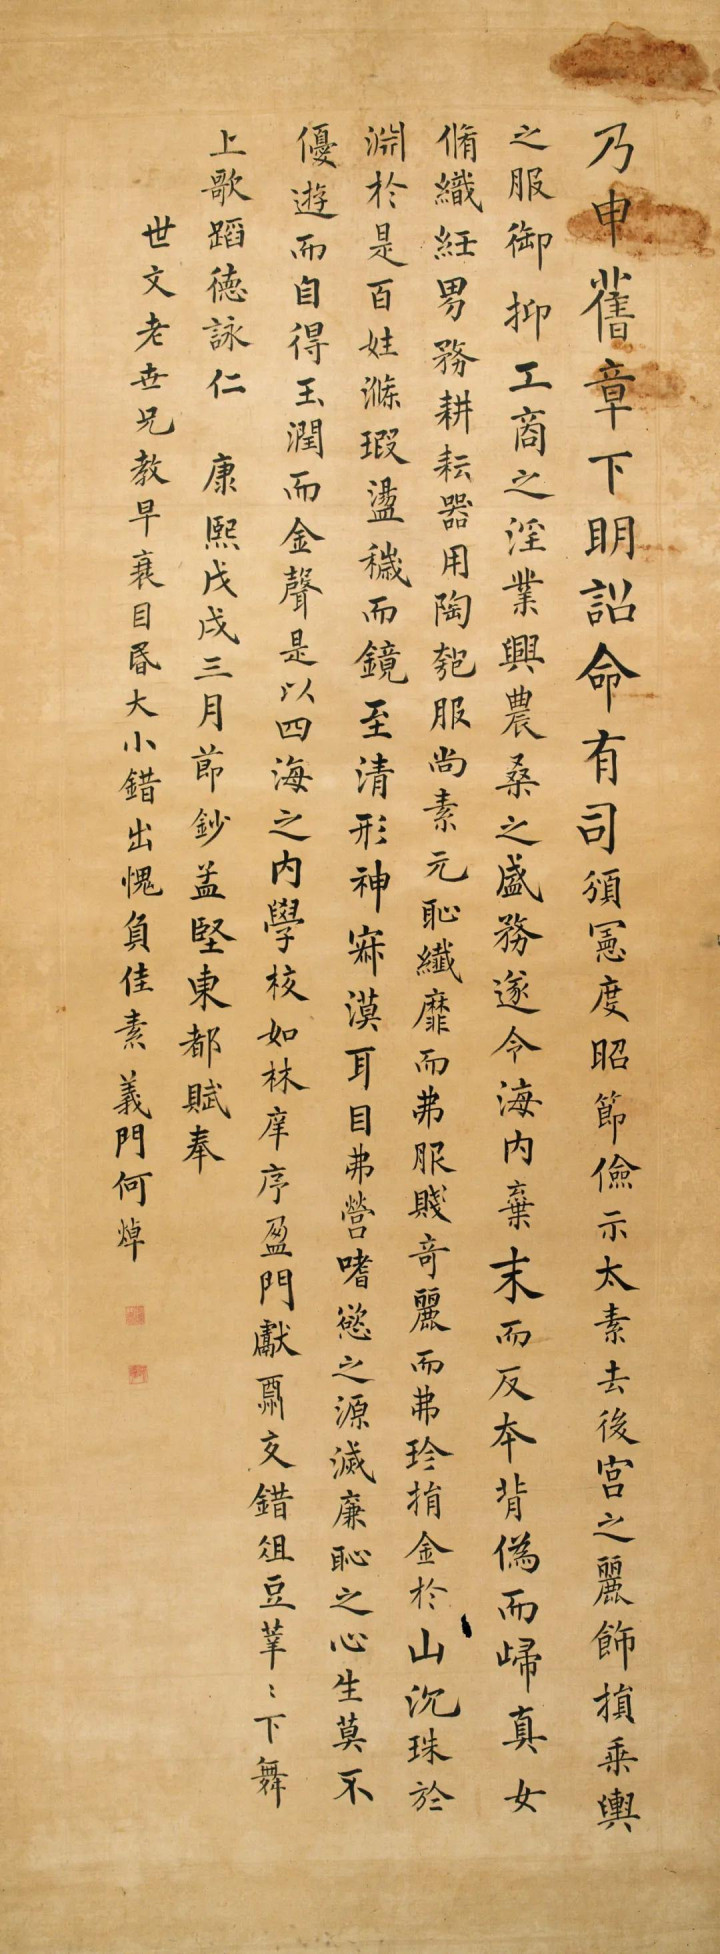 乃申舊章下明詔命有司頒憲度昭節儉示太素去後宮之麗飾損乘輿
之服御抑工商之淫業興農桑之盛務遂令海内棄末而反本背偽而歸真女
脩織紝男務耕耘器用陶匏服尚素元恥纖靡而弗服賤奇麗而弗珍捐金於山沉珠於
淵於是百姓滌瑕盪穢而鏡至清形神寂漠耳目弗營嗜慾之源滅廉恥之心生莫不
優遊而自得玉潤而金聲是以四海之内學校如林庠序盈門獻酬交錯俎豆莘〻下舞
上歌蹈德詠仁 康熙戊戌三月節鈔孟堅東都賦奉
世文老世兄教早衰目昏大小錯出愧負佳素 義門何焯